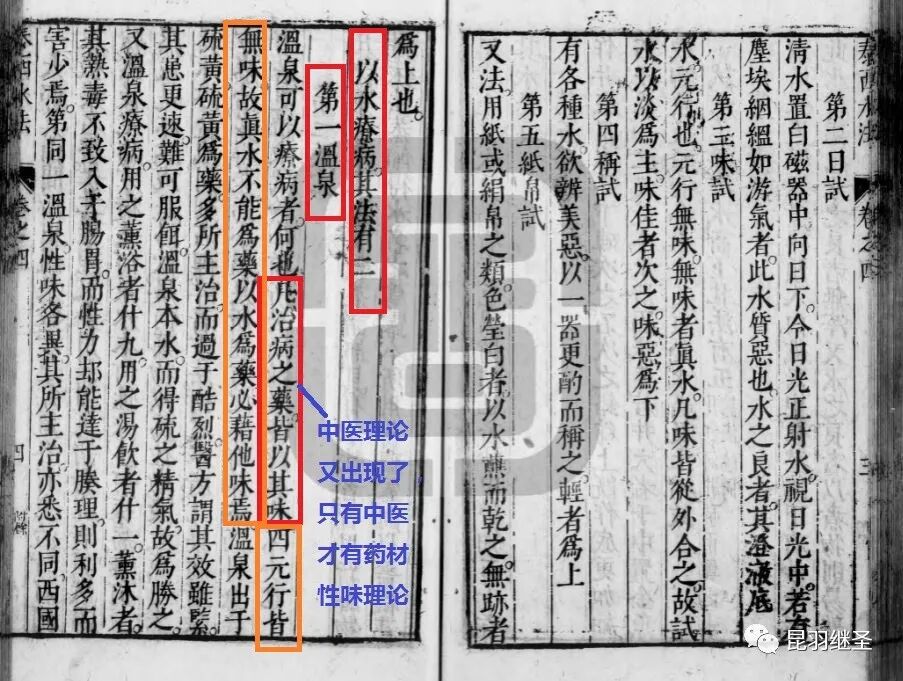 泰西水法 卷之四 三
第二日試
清水置白磁器中向日下令日光正射水視日光中若有
塵埃絪縕如游氣者此水質惡也水之良者其澄澈底
第三味試
水元行也元行無味無味者眞水凡味皆從外合之故試
水以淡爲主味佳者次之味惡爲下
第四稱試
有各種水欲辨美惡以一器更酌而稱之輕者爲上
第五紙帛試
又法用紙或絹帛之類色瑩白者以水蘸而乾之無跡者
爲上也
以水療病其法有二
第一溫泉
溫泉可以療病者何也凡治病之藥皆以其味四元行皆
無味故眞水不能爲藥以水爲藥必藉他味焉溫泉出于
硫黃硫黃爲藥多所主治而過于酷烈醫方謂其效雖緊
其患更速難可服餌溫泉本水而得硫之精氣故爲勝之
又溫泉療病用之薰浴者什九用之湯飲者什一薰沐者
其熱毒不致入于腸胃而性力却能達于腠理則利多而
害少焉第同一溫泉性味各異其所主治亦悉不同西國
泰西水法 卷之四 四
中医理论
又出现了
只有中医
才有药材
性味理论
昆羽继圣